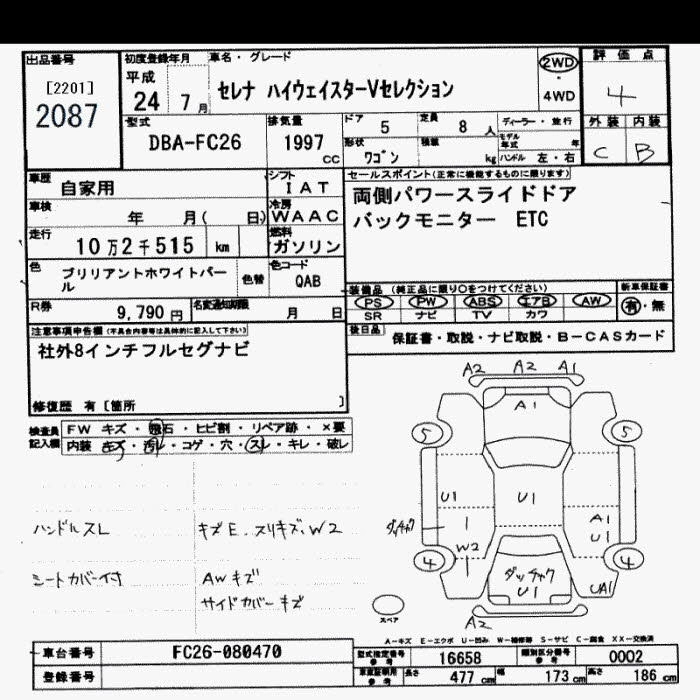 出品番号
[2201]
2087
初度登録年月
平成
24 7月
車名・グレード
セレナ ハイウェイスターVセレクション
2WD
4WD
評価点
4
外装 内装
C B
型式
DBA-FC26
排気量
1997 CC
ドア 5
定員 8人
形状 ワゴン
積載 kg
ディーラー・並行
モデル年式 年
ハンドル 左・右
車歴 自家用
シフト IAT
車検 年 月( 日)
冷房 WAAC
走行 10万2千515 km
燃料 ガソリン
色 ブリリアントホワイトパール
色替
色コード QAB
R券 9,790円
名変通知期限 月 日
セールスポイント(正常に機能するものに限ります)
両側パワースライドドア
バックモニター ETC
装備品 (純正品に限り○をつけてください)
PS PW ABS エアB AW
SR ナビ TV カワ
新車保証書
有・無
後日品 保証書・取説・ナビ取説・B-CASカード
注意事項申告欄(不具合内容等は具体的に記入して下さい)
社外8インチフルセグナビ
修復歴 有[箇所 ]
検査員記入欄
FW キズ・飛石・ヒビ割・リペア跡・×要
内装 キズ・汚レ・コゲ・穴・スレ・キレ・破レ
ハンドルスレ
キズE.スリキズ.W2
シートカバー付
AWキズ
サイドカバーキズ
A2 A2 A1
A1
5 5
U1 U1
ダッチャク
W2
A1
U1
4 4
ダッチャク
U1
UA1
A2
スペア
A-キズ E-エクボ U-凹み W-補修跡 S-サビ C-腐食 XX-交換済
車台番号 FC26-080470
登録番号
型式指定番号 参考 16658
類別区分番号 参考 0002
車庫証明用 参考 長さ 477 cm 幅 173 cm 高さ 186 cm